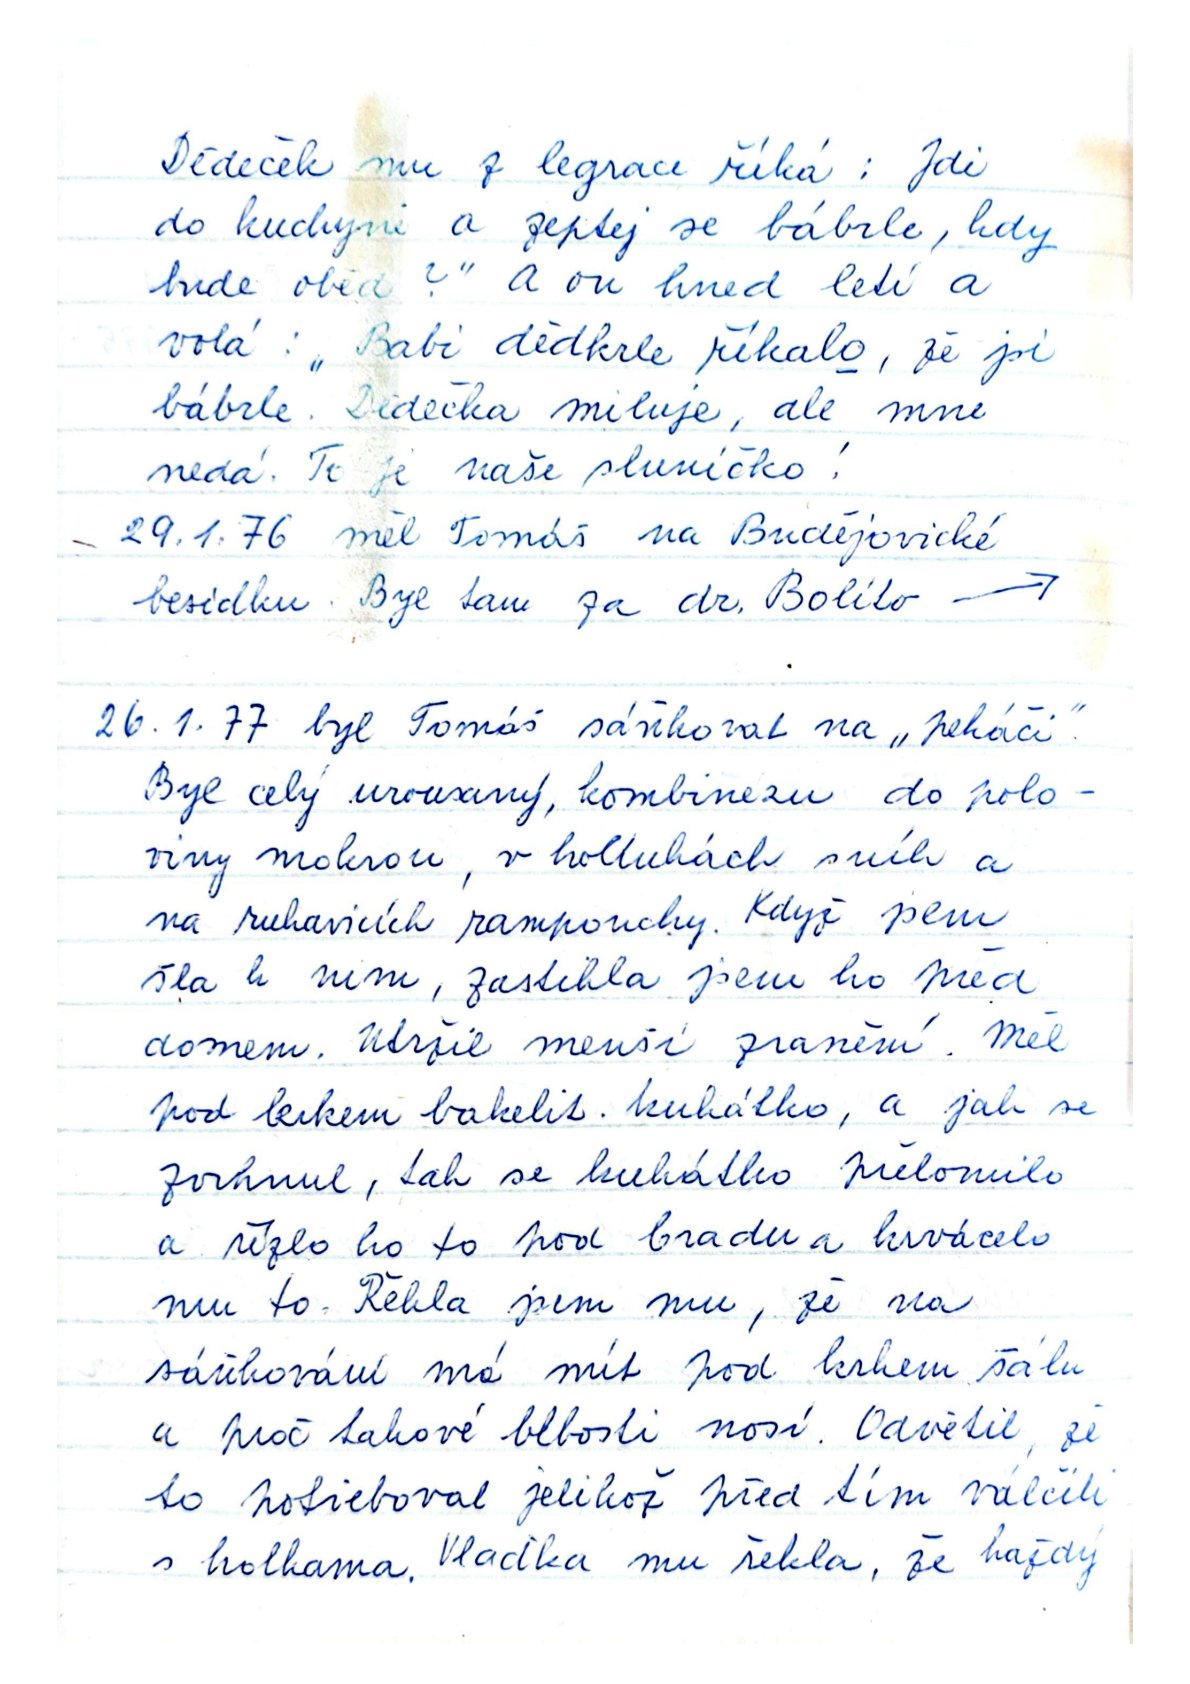 Dědeček mu z legrace říká : Jdi
do kuchyni a zeptej se bábrle, kdy
bude oběd ?" A on hned letí a
volá : „Babi dědkrle říkalo, že jsi
bábrle. Dědečka miluje, ale mne
nedá. To je naše sluníčko !
29.1.76 měl Tomáš na Budějovické
besídku. Byl tam za dr. Bolíto →
26.1.77 byl Tomáš sáňkovat na „pekáči".
Byl celý urousaný, kombinezu do polo-
viny mokrou, v holluhách sníh a
na rukavicích rampouchy. Když jsem
šla k nim, zastihla jsem ho před
domem. Utržil menší zranění. Měl
pod krkem bakelit. kukátko, a jak se
zvrhnul, tak se kukátko přelomilo
a řízlo ho to pod bradu a krvácelo
mu to. Řekla jsem mu, že na
sáňkování má mít pod krkem šálu
a proč takové blbosti nosí. Odvětil, že
to potřeboval jelikož před tím válčili
s holkama. Vlaďka mu řekla, že každý